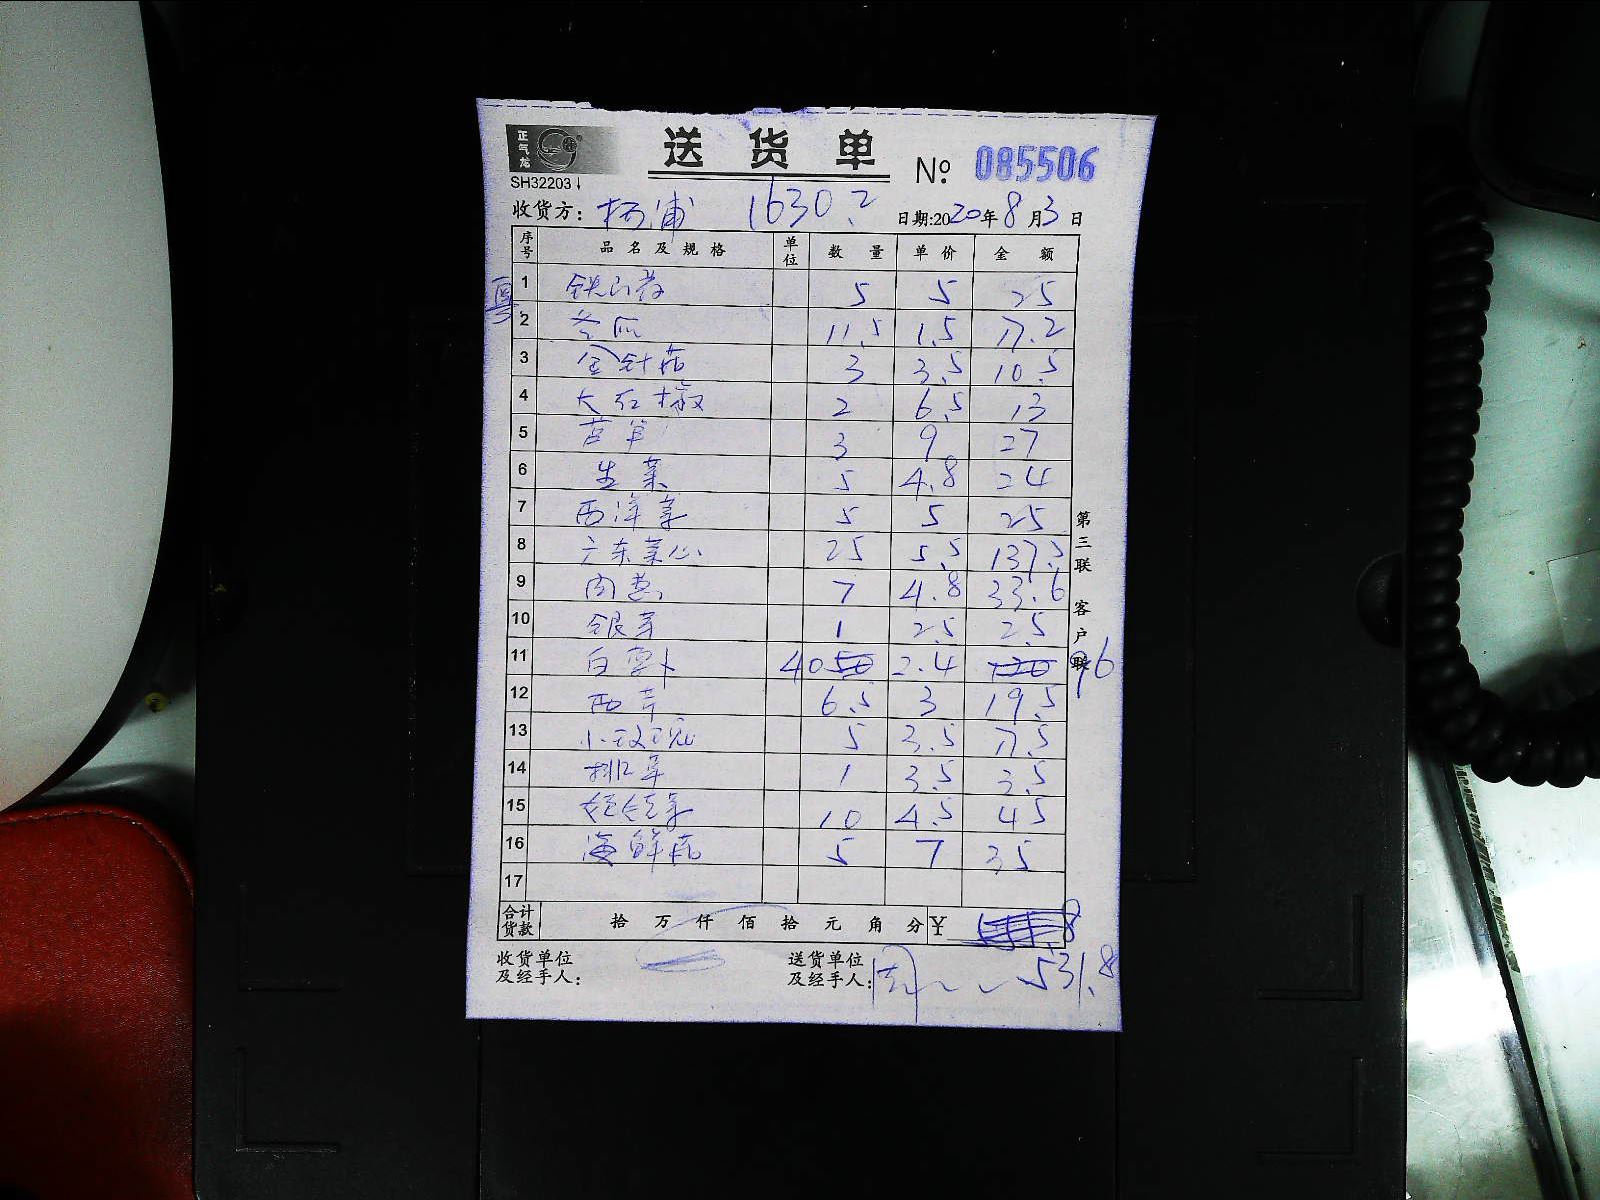 正气龙
送货单
№ 085506
SH32203
收货方: 杨浦 1630.2 日期:2020年8月3日
序号 品名及规格 单位 数量 单价 金额
1 铁山药 5 5 25
2 冬瓜 11.5 1.5 17.2
3 金针菇 3 3.5 10.5
4 大红椒 2 6.5 13
5 莴笋 3 9 27
6 生菜 5 4.8 24
7 西洋菜 5 5 25
8 广东菜心 25 5.5 137.5
9 肉葱 7 4.8 33.6
10 银芽 1 2.5 2.5
11 白萝卜 40 2.4 96
12 西芹 6.5 3 19.5
13 小 5 3.5 17.5
14 1 3.5 3.5
15 娃娃菜 10 4.5 45
16 海鲜菇 5 7 35
17
合计货款 拾 万 仟 佰 拾 元 角 分 ¥
531.8
收货单位及经手人:
送货单位及经手人:
第三联 客户联